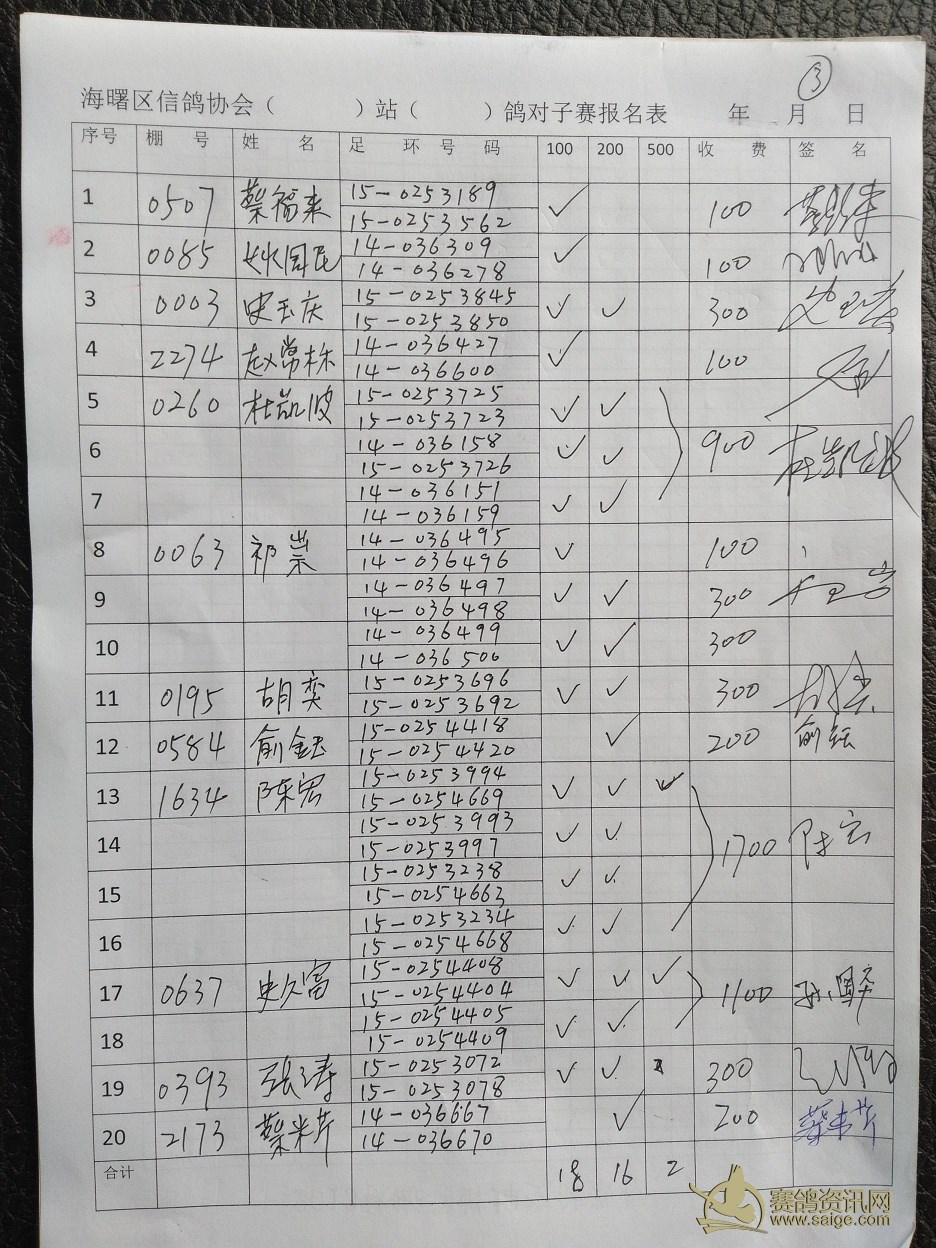 ③
海曙区信鸽协会（ ）站（ ）鸽对子赛报名表 年 月 日
序号 棚 号 姓 名 足 环 号 码 100 200 500 收 费 签 名
1 0507 蔡福来 15-0253189 ✓ 100
15-0253562
2 0085 国民 14-036309 ✓ 100
14-036278
3 0003 史玉庆 15-0253845 ✓ ✓ 300
15-0253850
4 2274 赵常株 14-036427 ✓ 100
14-036600
5 0260 杜凯波 15-0253725 ✓ ✓
15-0253723
6 14-036158 ✓ ✓ 900 杜凯波
15-0253726
7 14-036151 ✓ ✓
14-036159
8 0063 祁崇 14-036495 ✓ 100
14-036496
9 14-036497 ✓ ✓ 300
14-036498
10 14-036499 ✓ ✓ 300
14-036500
11 0195 胡奕 15-0253696 ✓ ✓ 300
15-0253692
12 0584 俞钰 15-0254418 ✓ 200 俞钰
15-0254420
13 1634 陈宏 15-0253994 ✓ ✓ ✓
15-0254669
14 15-0253993 ✓ ✓ 1700 陈宏
15-0253997
15 15-0253238 ✓ ✓
15-0254663
16 15-0253234 ✓ ✓
15-0254668
17 0637 史久富 15-0254408 ✓ ✓ ✓ 1100
15-0254404
18 15-0254405 ✓ ✓
15-0254409
19 0393 张涛 15-0253072 ✓ ✓ 300
15-0253078
20 2173 蔡米芹 14-036667 ✓ 200 蔡米芹
14-036670
合计 18 16 2
赛鸽资讯网
www.saige.com